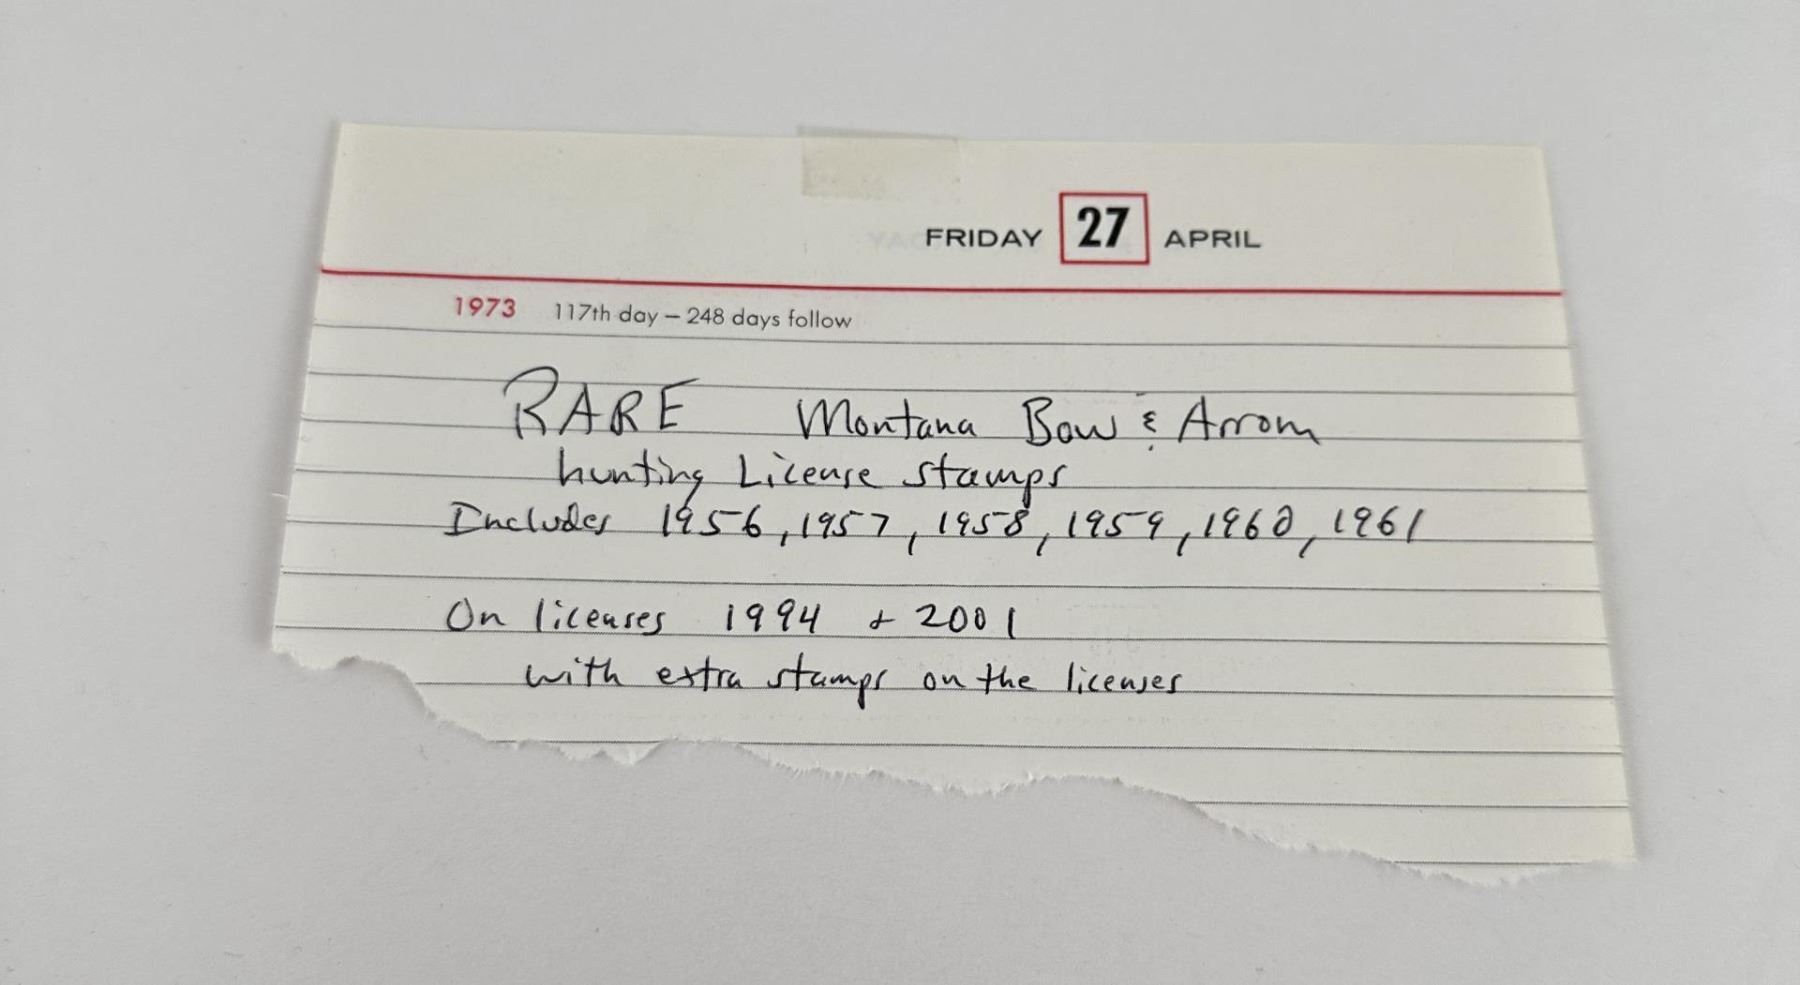 FRIDAY 27 APRIL
1973 117th day – 248 days follow
RARE Montana Bow & Arrow
hunting License stamps
Includes 1956, 1957, 1958, 1959, 1960, 1961
On licenses 1994 + 2001
with extra stamps on the licenses